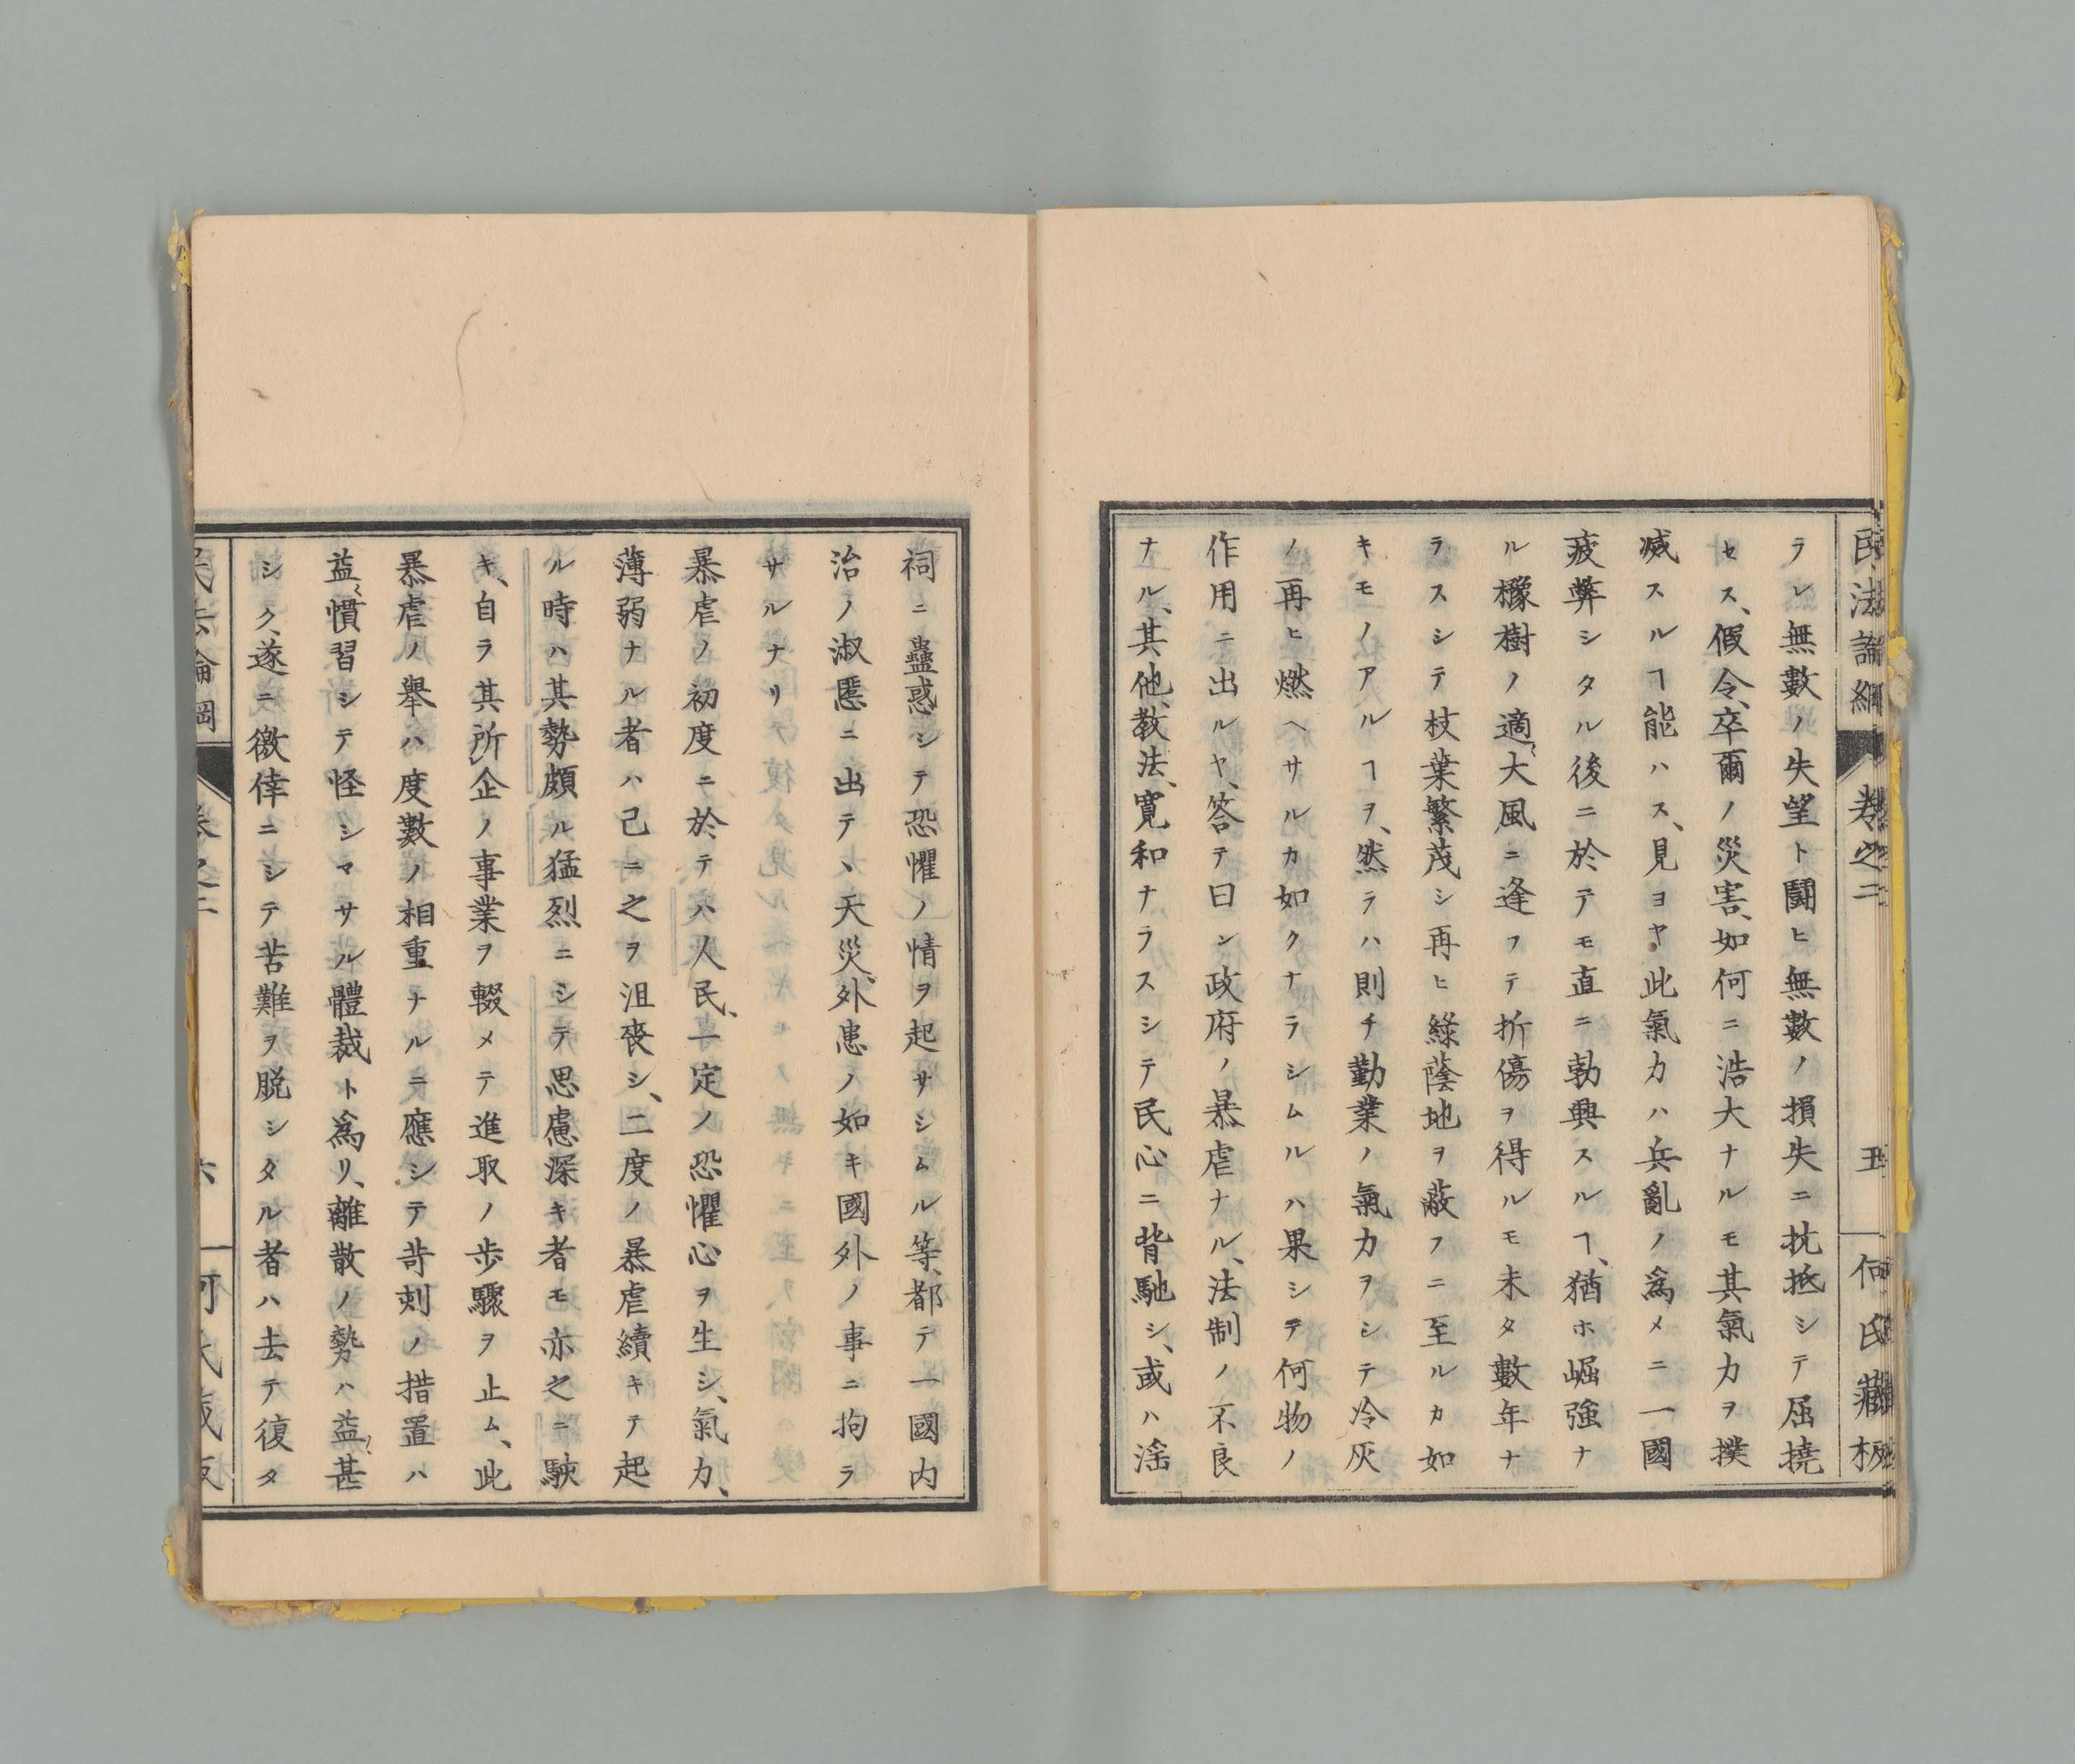 民法論綱 卷之二 五 何氏藏板
ラン無數ノ失望ト鬪ヒ無數ノ損失ニ抗抵シテ屈撓
セス、假令、卒爾ノ災害、如何ニ浩大ナルモ其氣力ヲ撲
滅スルヿ能ハス、見ヨヤ此氣力ハ兵亂ノ爲メニ一國
疲弊シタル後ニ於テモ直ニ勃興スルヿ、猶ホ崛強ナ
ル橡樹ノ適〻大風ニ逢フテ折傷ヲ得ルモ未タ數年ナ
ラスシテ枝葉繁茂シ再ヒ綠蔭地ヲ蔽フニ至ルカ如
キモノアルヿヲ、然ラハ則チ勤業ノ氣力ヲシテ冷灰
ノ再ヒ燃ヘサルカ如クナラシムルハ果シテ何物ノ
作用ニ出ルヤ、答テ曰ン政府ノ暴虐ナル、法制ノ不良
ナル、其他、教法、寛和ナラスシテ民心ニ背馳シ、或ハ滛
祠ニ蠱惑シテ恐懼ノ情ヲ起サシムル等、都テ一國内
治ノ淑慝ニ出テヽ天災、外患ノ如キ國外ノ事ニ拘ラ
サルナリ
暴虐ノ初度ニ於テハ人民、一定ノ恐懼心ヲ生シ、氣力、
薄弱ナル者ハ己ニ之ヲ沮喪シ、二度ノ暴虐續キテ起
ル時ハ其勢頗ル猛烈ニシテ思慮深キ者モ亦之ニ駛
キ、自ラ其所企ノ事業ヲ輟メテ進取ノ歩驟ヲ止ム、此
暴虐ノ舉ハ度數ノ相重ナルニ應シテ苛刻ノ措置ハ
益〻慣習シテ怪シマサル體裁ト爲リ、離散ノ勢ハ益〻甚
シク、遂ニ徼倖ニシテ苦難ヲ脱シタル者ハ去テ復タ
民法論綱 卷之二 六 何氏藏板